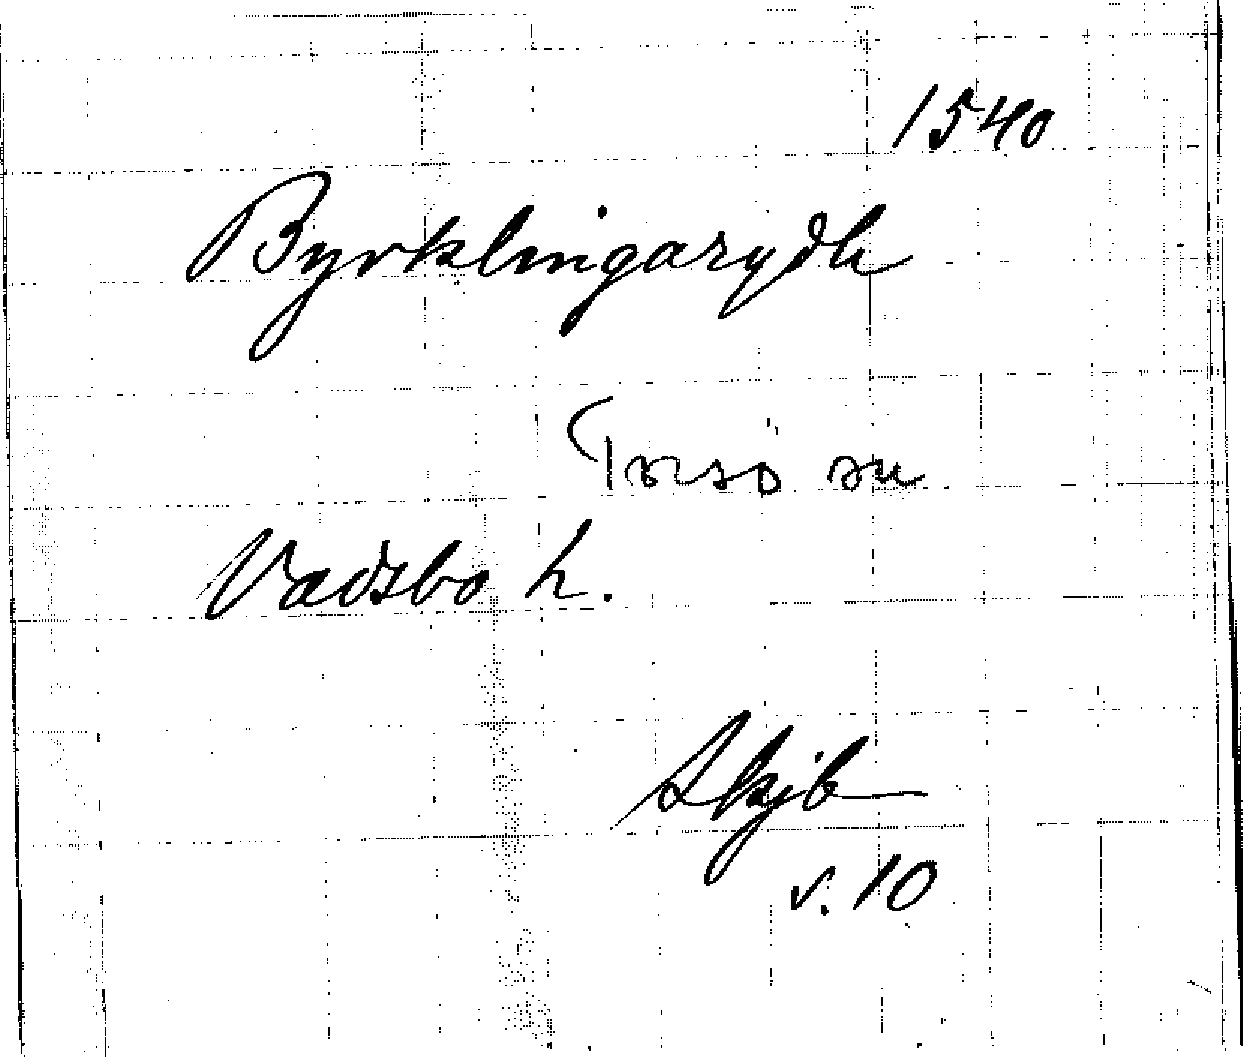 1540
Byrklingarydh
Torsö sn
Vadsbo h.
Skjb
v. 10